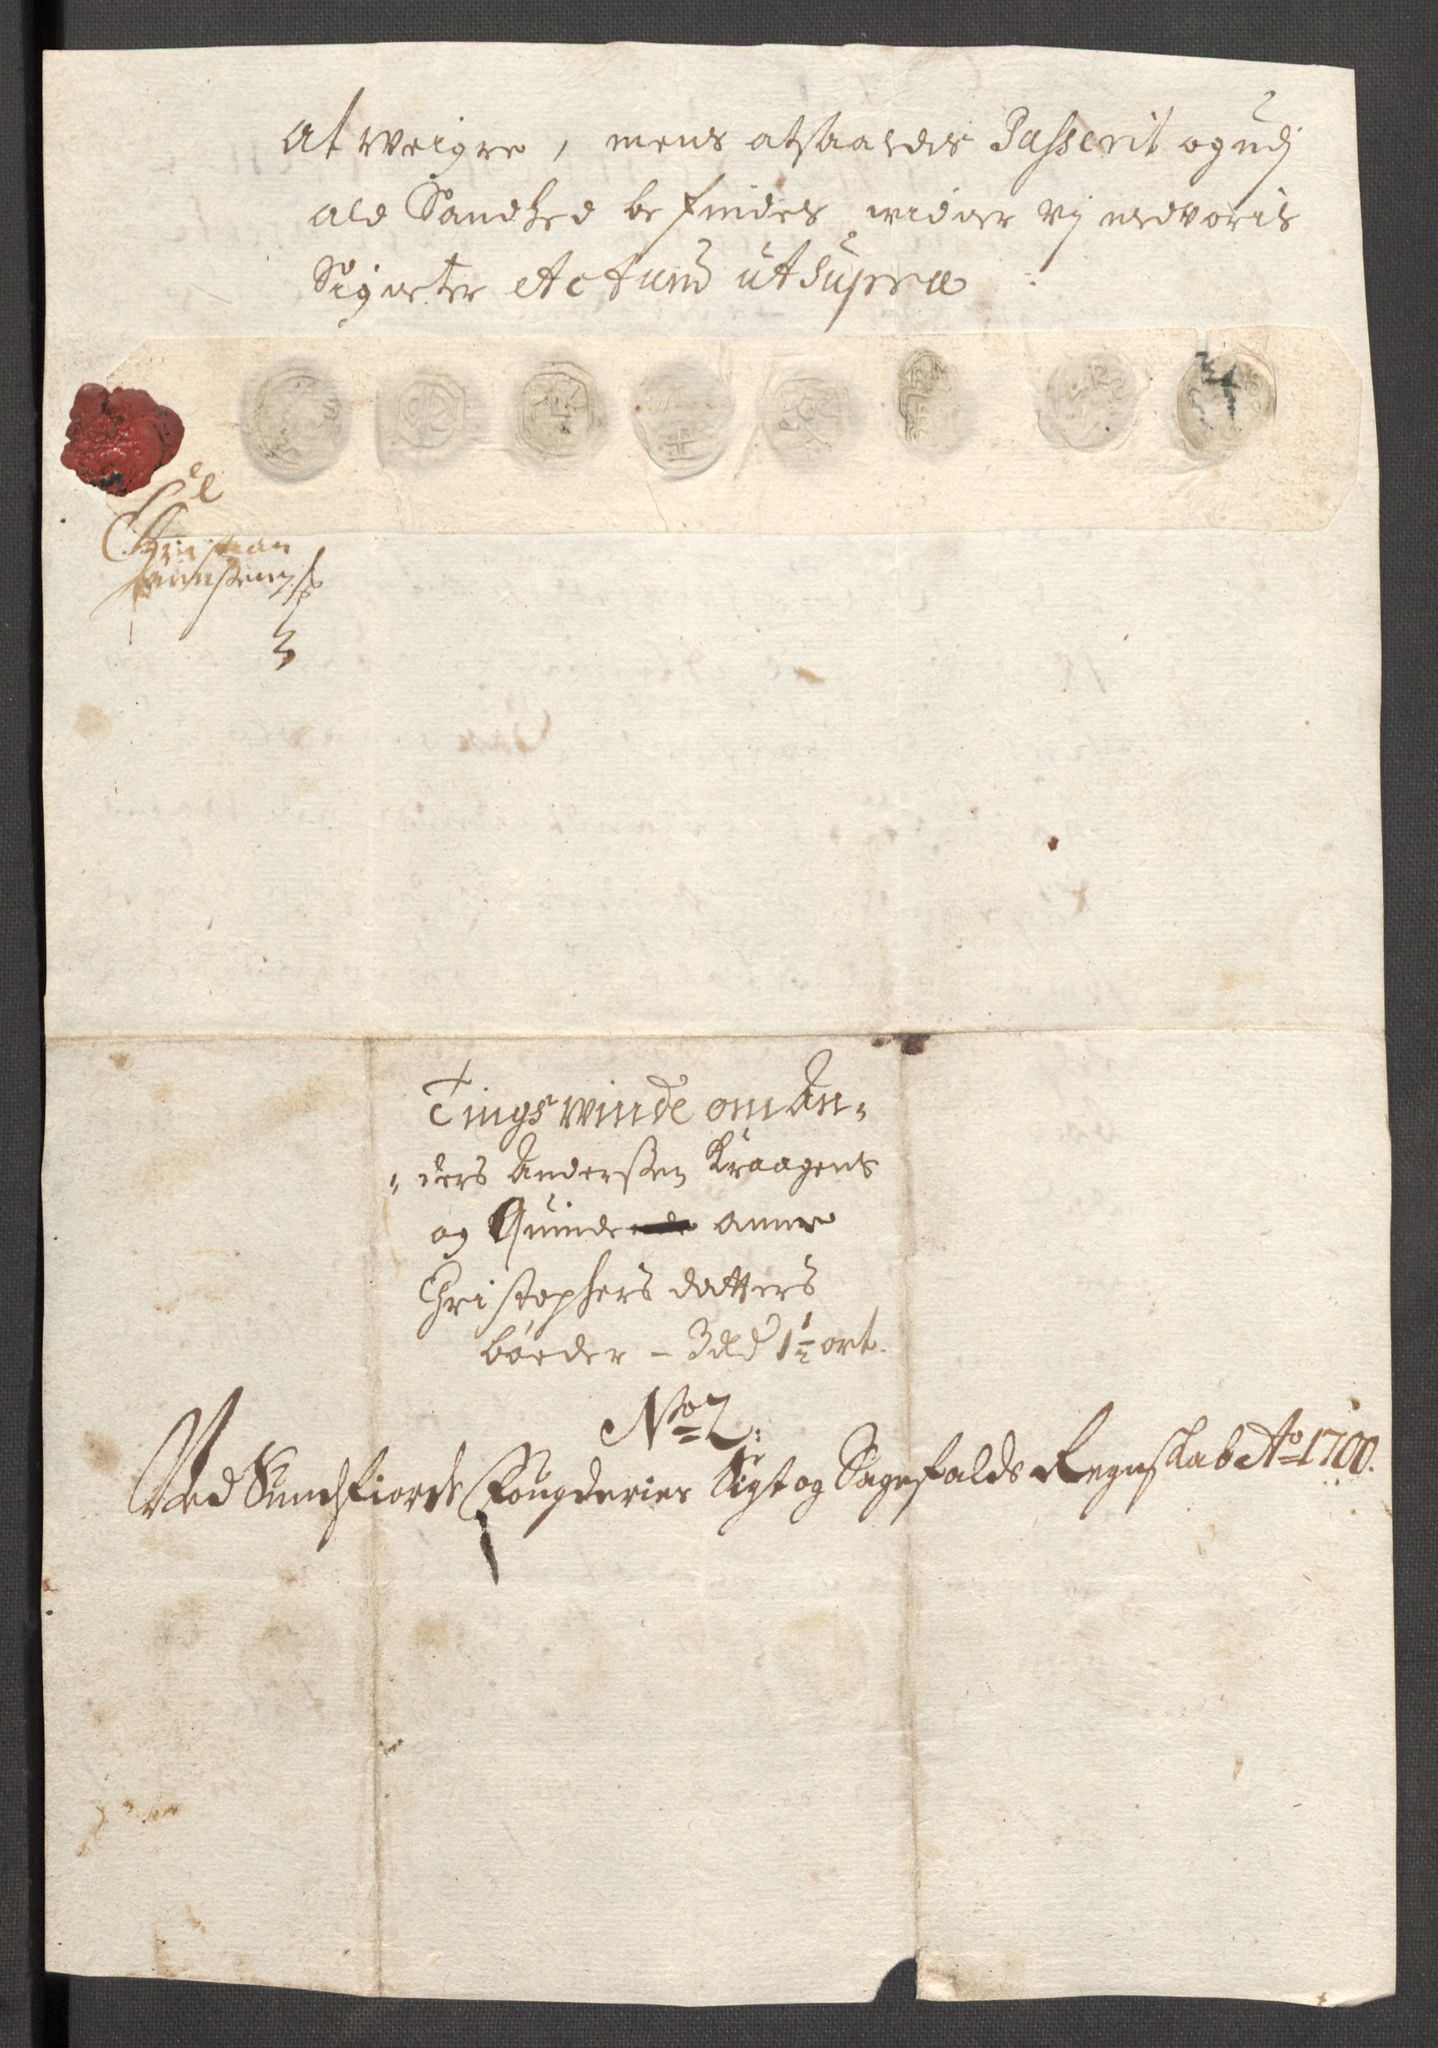 at weigre, mens atsaaledes Passerit og udj
ald Sandhed befindes, widner vj med voris
Signeter Actum ut Supra
Christian
Tingswinde om An-
ders Anderßen Kraagens
og Quinde anne
Christophers datters
bøeder - 3 rd 1½ ort.
No 2:
Ved Sundfiords Fougderies Sigt og Sagefalds Regnskab Ao 1700.